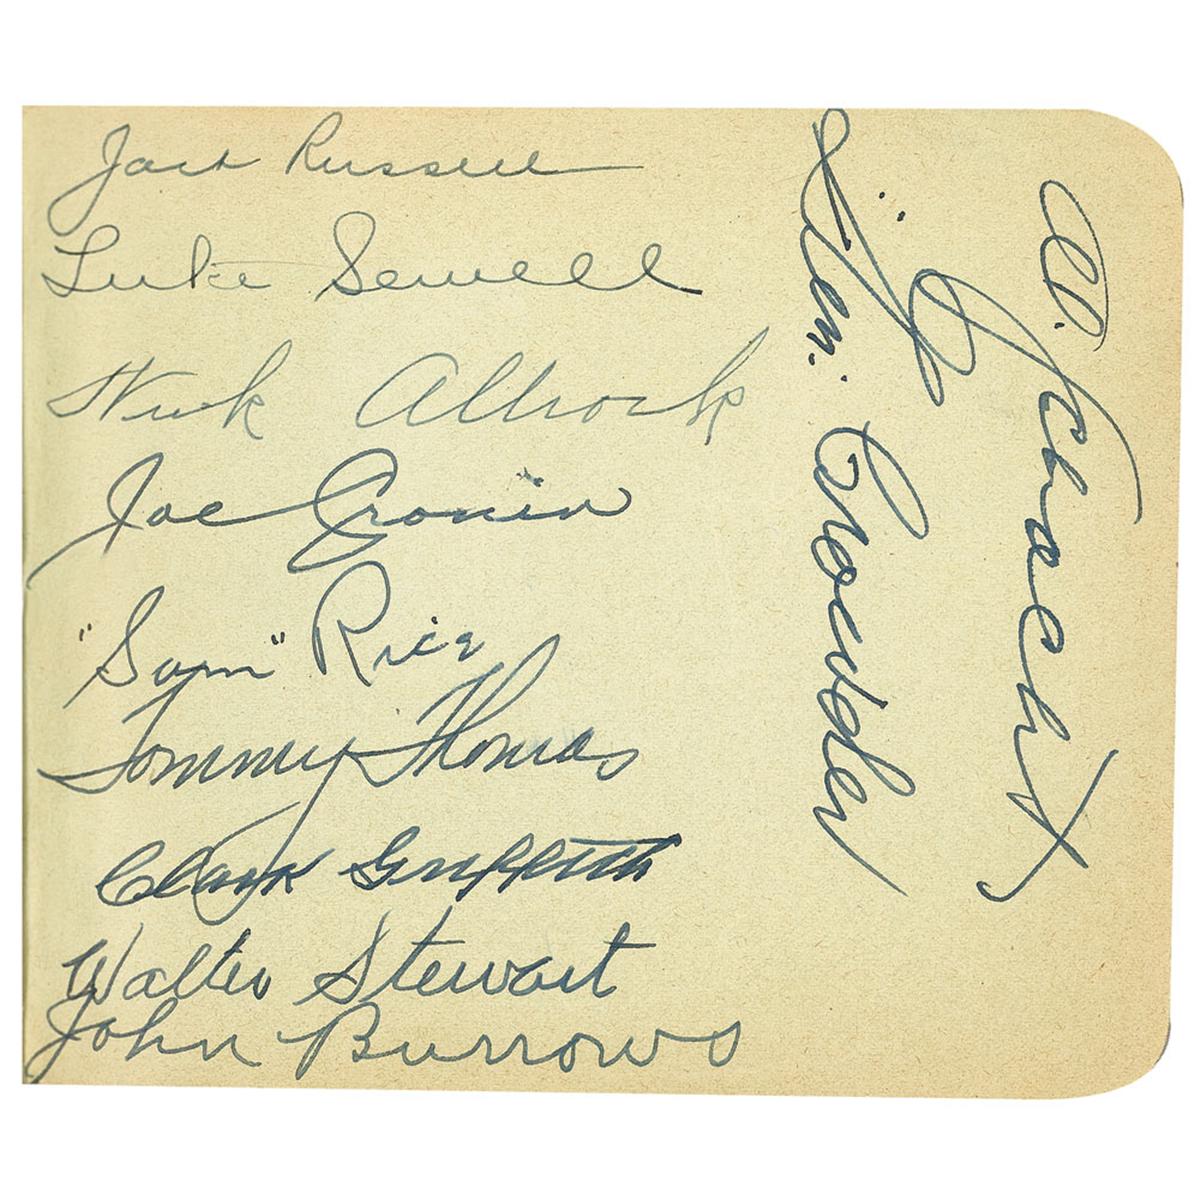 Jack Russell
Luke Sewell
Nick Altrock
Joe Cronin
"Sam" Rice
Tommy Thomas
Clark Griffith
Walter Stewart
John Burrows
"Gen." Crowder
Al. Schacht